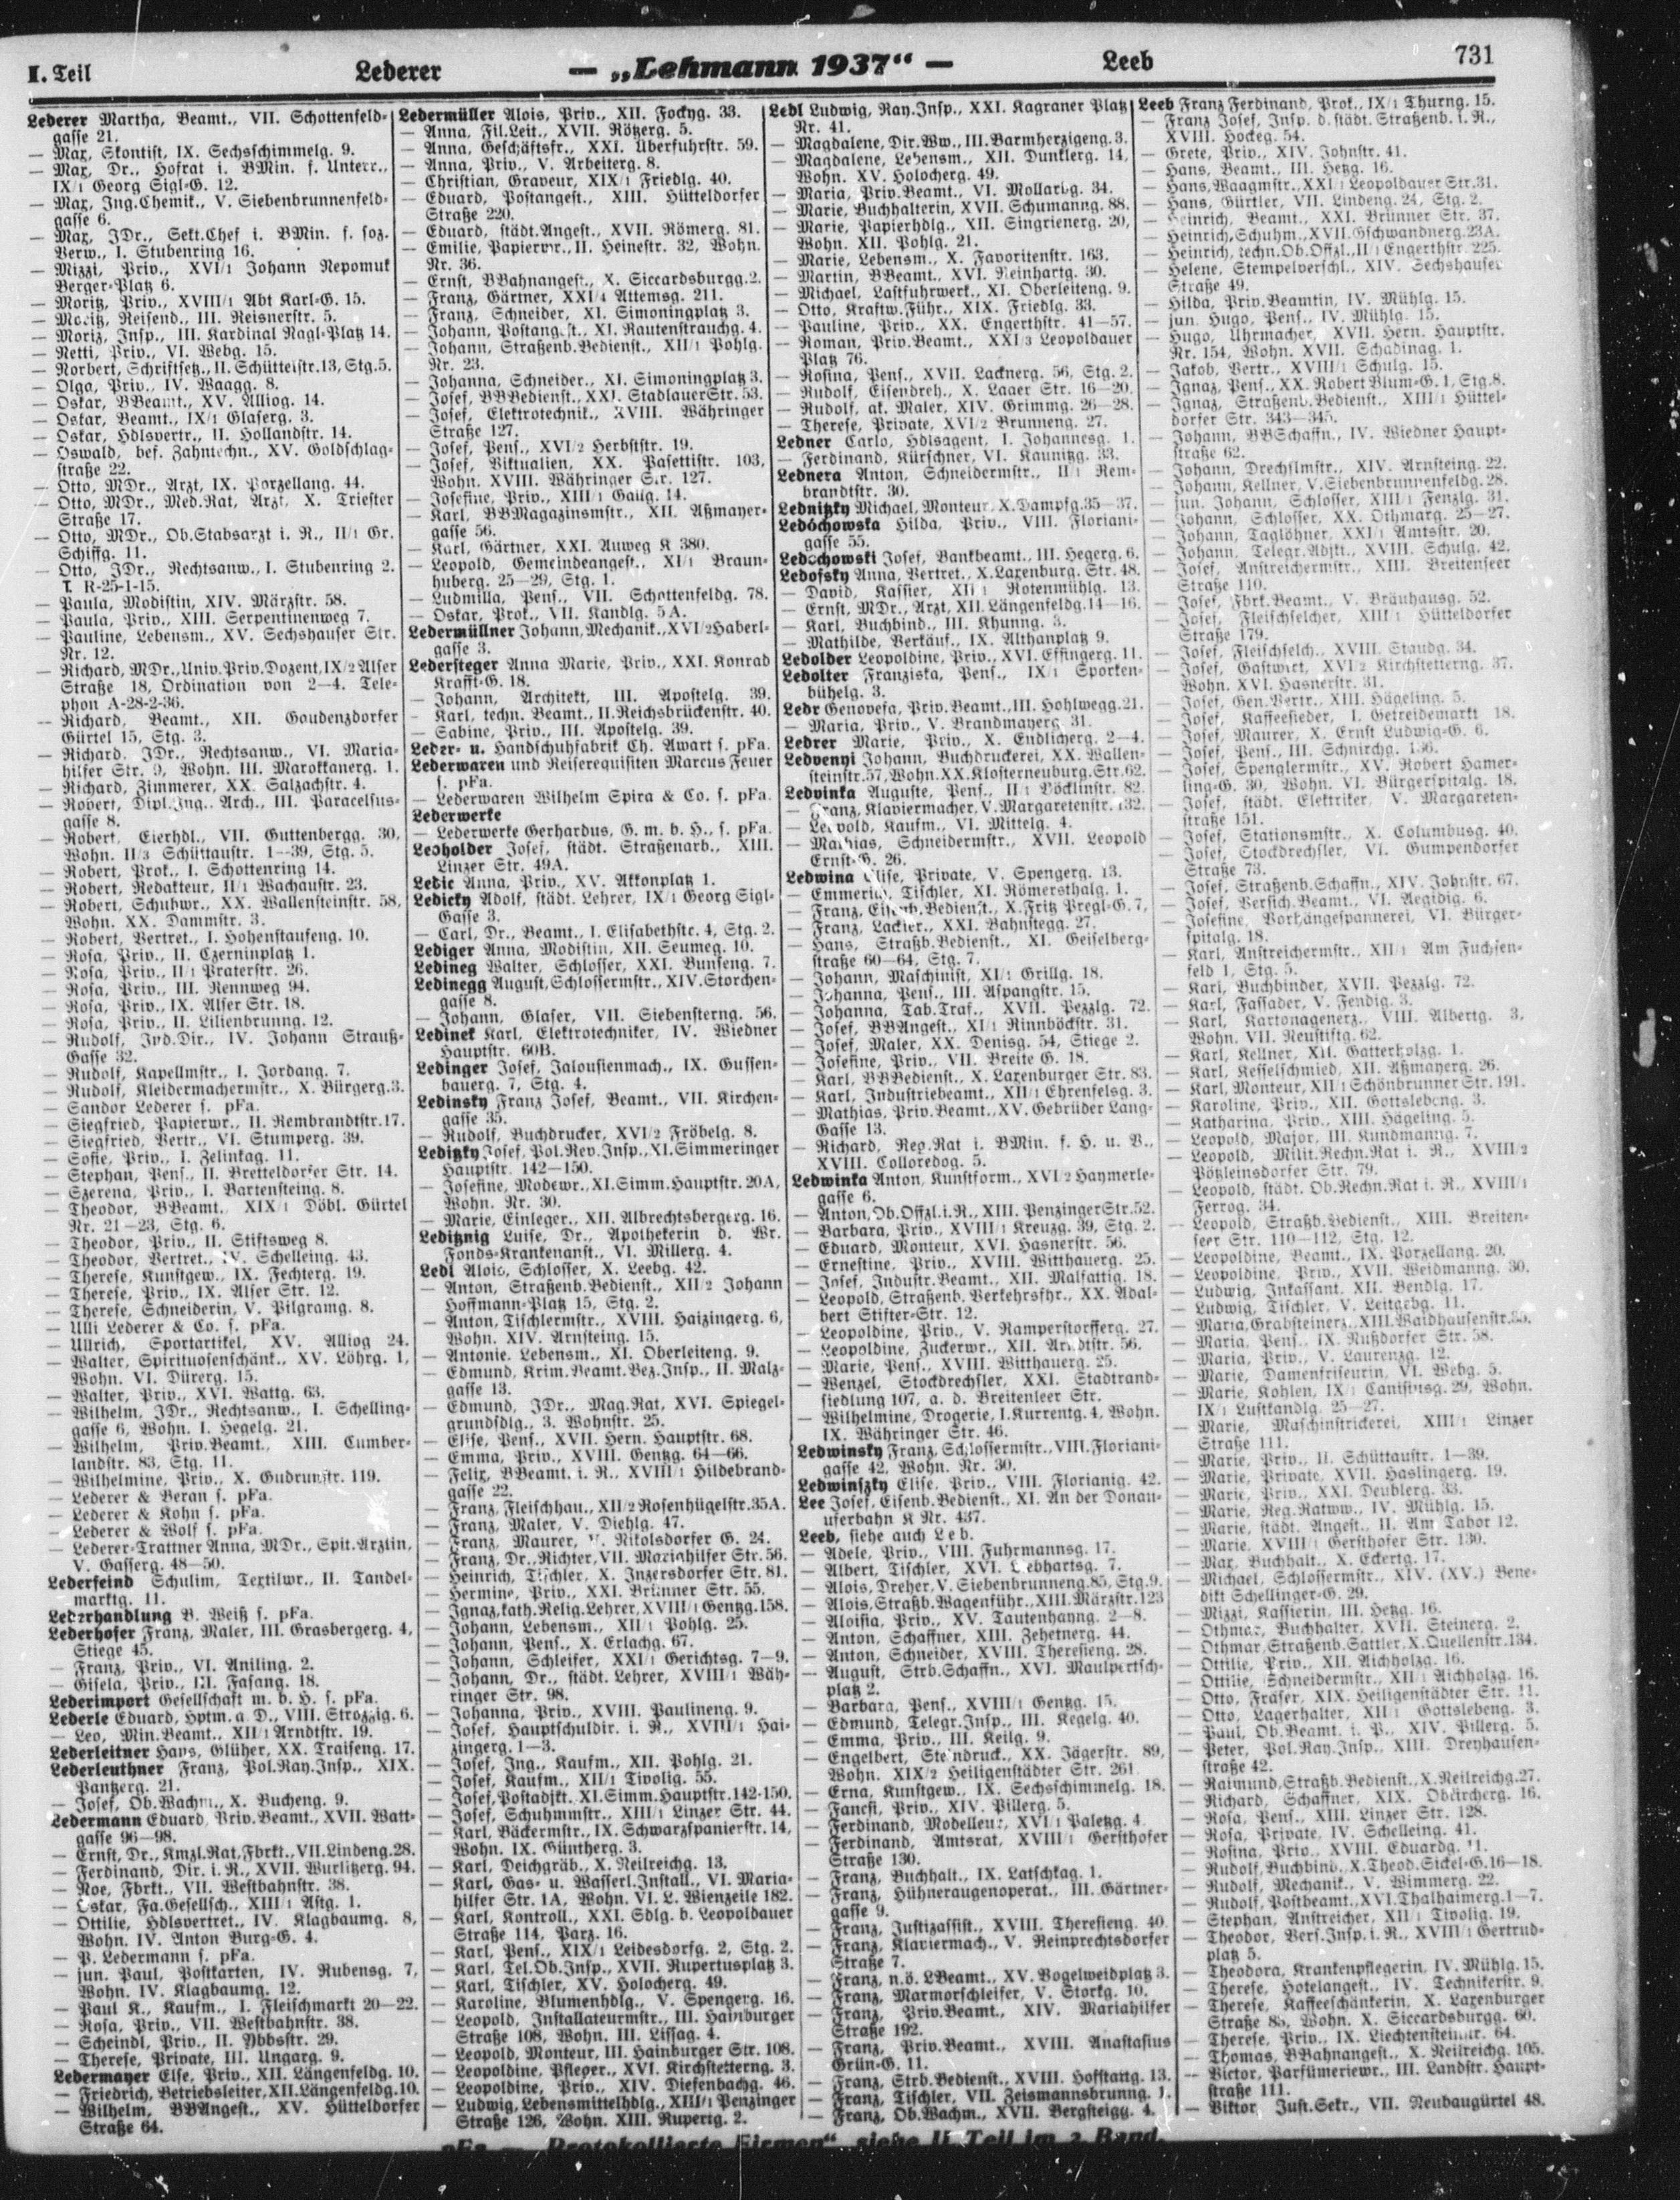 I. Teil
Lederer
— „Lehmann 1937“ —
Leeb
731
Lederer Martha, Beamt., VII. Schottenfeld-
gasse 21.
— Max, Skontist, IX. Sechsschimmelg. 9.
— Max, Dr., Hofrat i. BMin. f. Unterr.,
IX/1 Georg Sigl-G. 12.
— Max, Ing.Chemik., V. Siebenbrunnenfeld-
gasse 6.
— Max, JDr., Sekt.Chef i. BMin. f. soz.
Verw., I. Stubenring 16.
— Mizzi, Priv., XVI/1 Johann Nepomuk
Berger-Platz 6.
— Moritz, Priv., XVIII/1 Abt Karl-G. 15.
— Moritz, Reisend., III. Reisnerstr. 5.
— Moriz, Insp., III. Kardinal Nagl-Platz 14.
— Netti, Priv., VI. Webg. 15.
— Norbert, Schriftsetz., II. Schüttelstr.13, Stg.5.
— Olga, Priv., IV. Waagg. 8.
— Oskar, BBeamt., XV. Alliog. 14.
— Oskar, Beamt., IX/1 Glaserg. 3.
— Oskar, Hdlsvertr., II. Hollandstr. 14.
— Oswald, bef. Zahntechn., XV. Goldschlag-
straße 22.
— Otto, MDr., Arzt, IX. Porzellang. 44.
— Otto, MDr., Med.Rat, Arzt, X. Triester
Straße 17.
— Otto, MDr., Ob.Stabsarzt i. R., II/1 Gr.
Schiffg. 11.
— Otto, JDr., Rechtsanw., I. Stubenring 2.
T. R-25-1-15.
— Paula, Modistin, XIV. Märzstr. 58.
— Paula, Priv., XIII. Serpentinenweg 7.
— Pauline, Lebensm., XV. Sechshauser Str.
Nr. 12.
— Richard, MDr.,Univ.Priv.Dozent,IX/2 Alser
Straße 18, Ordination von 2—4. Tele-
phon A-28-2-36.
— Richard, Beamt., XII. Gaudenzdorfer
Gürtel 15, Stg. 3.
— Richard, JDr., Rechtsanw., VI. Maria-
hilfer Str. 9, Wohn. III. Marokkanerg. 1.
— Richard, Zimmerer, XX. Salzachstr. 4.
— Robert, Dipl.Ing., Arch., III. Paracelsus-
gasse 8.
— Robert, Eierhdl., VII. Guttenbergg. 30,
Wohn. II/3 Schüttaustr. 1—39, Stg. 5.
— Robert, Prok., I. Schottenring 14.
— Robert, Redakteur, II/1 Wachaustr. 23.
— Robert, Schuhwr., XX. Wallensteinstr. 58,
Wohn. XX. Dammstr. 3.
— Robert, Vertret., I. Hohenstaufeng. 10.
— Rosa, Priv., II. Czerninplatz 1.
— Rosa, Priv., II/1 Praterstr. 26.
— Rosa, Priv., III. Rennweg 94.
— Rosa, Priv., IX. Alser Str. 18.
— Rosa, Priv., II. Lilienbrunng. 12.
— Rudolf, Ind.Dir., IV. Johann Strauß-
Gasse 32.
— Rudolf, Kapellmstr., I. Jordang. 7.
— Rudolf, Kleidermachermstr., X. Bürgerg.3.
— Sandor Lederer s. pFa.
— Siegfried, Papierwr., II. Rembrandtstr.17.
— Siegfried, Vertr., VI. Stumperg. 39.
— Sofie, Priv., I. Zelinkag. 11.
— Stephan, Pens., II. Bretteldorfer Str. 14.
— Szerena, Priv., I. Bartensteing. 8.
— Theodor, BBeamt., XIX/1 Döbl. Gürtel
Nr. 21—23, Stg. 6.
— Theodor, Priv., II. Stiftsweg 8.
— Theodor, Vertret., IV. Schelleing. 43.
— Therese, Kunstgew., IX. Fechterg. 19.
— Therese, Priv., IX. Alser Str. 12.
— Therese, Schneiderin, V. Pilgramg. 8.
— Ulli Lederer & Co. s. pFa.
— Ullrich, Sportartikel, XV. Alliog 24.
— Walter, Spirituosenschänk., XV. Löhrg. 1,
Wohn. VI. Dürerg. 15.
— Walter, Priv., XVI. Wattg. 63.
— Wilhelm, JDr., Rechtsanw., I. Schelling-
gasse 6, Wohn. I. Hegelg. 21.
— Wilhelm, Priv.Beamt., XIII. Cumber-
landstr. 83, Stg. 11.
— Wilhelmine, Priv., X. Gudrunstr. 119.
— Lederer & Beran s. pFa.
— Lederer & Kohn s. pFa.
— Lederer & Wolf s. pFa.
— Lederer-Trattner Anna, MDr., Spit.Ärztin,
V. Gasserg. 48—50.
Lederfeind Schulim, Textilwr., II. Tandel-
marktg. 11.
Lederhandlung B. Weiß s. pFa.
Lederhofer Franz, Maler, III. Grasbergerg. 4,
Stiege 45.
— Franz, Priv., VI. Aniling. 2.
— Gisela, Priv., III. Fasang. 18.
Lederimport Gesellschaft m. b. H. s. pFa.
Lederle Eduard, Hptm. a. D., VIII. Strozzig. 6.
— Leo, Min.Beamt., XII/1 Arndtstr. 19.
Lederleitner Hans, Glüher, XX. Traiseng. 17.
Lederleuthner Franz, Pol.Ray.Insp., XIX.
Pantzerg. 21.
— Josef, Ob.Wachm., X. Bucheng. 9.
Ledermann Eduard, Priv.Beamt., XVII. Watt-
gasse 96—98.
— Ernst, Dr., Kmzl.Rat, Fbrkt., VII.Lindeng.28.
— Ferdinand, Dir. i. R., XVII. Wurlitzerg. 94.
— Noe, Fbrkt., VII. Westbahnstr. 38.
— Oskar, Fa.Gesellsch., XIII/1 Astg. 1.
— Ottilie, Hdlsvertret., IV. Klagbaumg. 8,
Wohn. IV. Anton Burg-G. 4.
— P. Ledermann s. pFa.
— jun. Paul, Postkarten, IV. Rubensg. 7,
Wohn. IV. Klagbaumg. 12.
— Paul K., Kaufm., I. Fleischmarkt 20—22.
— Rosa, Priv., VII. Westbahnstr. 38.
— Scheindl, Priv., II. Ybbsstr. 29.
— Therese, Private, III. Ungarg. 9.
Ledermayer Else, Priv., XII. Längenfeldg. 10.
— Friedrich, Betriebsleiter, XII.Längenfeldg.10.
— Wilhelm, BBAngest., XV. Hütteldorfer
Straße 64.
Ledermüller Alois, Priv., XII. Fockyg. 33.
— Anna, Fil.Leit., XVII. Rötzerg. 5.
— Anna, Geschäftsfr., XXI. Überfuhrstr. 59.
— Anna, Priv., V. Arbeiterg. 8.
— Christian, Graveur, XIX/1 Friedlg. 40.
— Eduard, Postangest., XIII. Hütteldorfer
Straße 220.
— Eduard, städt.Angest., XVII. Römerg. 81.
— Emilie, Papierwr., II. Heinestr. 32, Wohn.
Nr. 36.
— Ernst, BBahnangest., X. Siccardsburgg.2.
— Franz, Gärtner, XXI/4 Attemsg. 211.
— Franz, Schneider, XI. Simoningplatz 3.
— Johann, Postangest., XI. Rautenstrauchg. 4.
— Johann, Straßenb.Bedienst., XII/1 Pohlg.
Nr. 23.
— Johanna, Schneider., XI. Simoningplatz 3.
— Josef, BBBedienst., XXI. Stadlauer Str. 53.
— Josef, Elektrotechnik., XVIII. Währinger
Straße 127.
— Josef, Pens., XVI/2 Herbststr. 19.
— Josef, Viktualien, XX. Pasettistr. 103,
Wohn. XVIII. Währinger Str. 127.
— Josefine, Priv., XIII/1 Gallg. 14.
— Karl, BBMagazinsmstr., XII. Aßmayer-
gasse 56.
— Karl, Gärtner, XXI. Auweg K 380.
— Leopold, Gemeindeangest., XI/1 Braun-
huberg. 25—29, Stg. 1.
— Ludmilla, Pens., VII. Schottenfeldg. 78.
— Oskar, Prok., VII. Kandlg. 5 A.
Ledermüllner Johann, Mechanik., XVI/2 Haberl-
gasse 3.
Ledersteger Anna Marie, Priv., XXI. Konrad
Krafft-G. 18.
— Johann, Architekt, III. Apostelg. 39.
— Karl, techn. Beamt., II.Reichsbrückenstr. 40.
— Sabine, Priv., III. Apostelg. 39.
Leder- u. Handschuhfabrik Ch. Awart s. pFa.
Lederwaren und Reiserequisiten Marcus Feuer
s. pFa.
— Lederwaren Wilhelm Spira & Co. s. pFa.
Lederwerke
— Lederwerke Gerhardus, G. m. b. H., s. pFa.
Ledholder Josef, städt. Straßenarb., XIII.
Linzer Str. 49A.
Ledic Anna, Priv., XV. Akkonplatz 1.
Ledicky Adolf, städt. Lehrer, IX/1 Georg Sigl-
Gasse 3.
— Carl, Dr., Beamt., I. Elisabethstr. 4, Stg. 2.
Lediger Anna, Modistin, XII. Seumeg. 10.
Ledineg Walter, Schlosser, XXI. Bunseng. 7.
Ledinegg August, Schlossermstr., XIV. Storchen-
gasse 8.
— Johann, Glaser, VII. Siebensterng. 56.
Ledinek Karl, Elektrotechniker, IV. Wiedner
Hauptstr. 60B.
Ledinger Josef, Jalousienmach., IX. Gussen-
bauerg. 7, Stg. 4.
Ledinsky Franz Josef, Beamt., VII. Kirchen-
gasse 35.
— Rudolf, Buchdrucker, XVI/2 Fröbelg. 8.
Leditzky Josef, Pol.Rev.Insp., XI.Simmeringer
Hauptstr. 142—150.
— Josefine, Modewr., XI.Simm.Hauptstr. 20A,
Wohn. Nr. 30.
— Marie, Einleger., XII. Albrechtsbergerg. 16.
Leditznig Luise, Dr., Apothekerin d. Wr.
Fonds-Krankenanst., VI. Millerg. 4.
Ledl Alois, Schlosser, X. Leebg. 42.
— Anton, Straßenb.Bedienst., XII/2 Johann
Hoffmann-Platz 15, Stg. 2.
— Anton, Tischlermstr., XVIII. Haizingerg. 6,
Wohn. XIV. Arnsteing. 15.
— Antonie, Lebensm., XI. Oberleiteng. 9.
— Edmund, Krim.Beamt.Bez.Insp., II. Malz-
gasse 13.
— Edmund, JDr., Mag.Rat, XVI. Spiegel-
grundsdlg., 3. Wohnstr. 25.
— Elise, Pens., XVII. Hern. Hauptstr. 68.
— Emma, Priv., XVIII. Gentzg. 64—66.
— Felix, BBeamt. i. R., XVIII/1 Hildebrand-
gasse 22.
— Franz, Fleischhau., XII/2 Rosenhügelstr.35A.
— Franz, Maler, V. Diehlg. 47.
— Franz, Maurer, V. Nikolsdorfer G. 24.
— Franz, Dr., Richter, VII. Mariahilfer Str. 56.
— Heinrich, Tischler, X. Inzersdorfer Str. 81.
— Hermine, Priv., XXI. Brünner Str. 55.
— Ignaz, kath.Relig.Lehrer, XVIII/1 Gentzg.158.
— Johann, Lebensm., XII/1 Pohlg. 25.
— Johann, Pens., X. Erlachg. 67.
— Johann, Schleifer, XXI/1 Gerichtsg. 7—9.
— Johann, Dr., städt. Lehrer, XVIII/1 Wäh-
ringer Str. 98.
— Johanna, Priv., XVIII. Paulineng. 9.
— Josef, Hauptschuldir. i. R., XVIII/1 Hai-
zingerg. 1—3.
— Josef, Ing., Kaufm., XII. Pohlg. 21.
— Josef, Kaufm., XII/1 Tivolig. 55.
— Josef, Postadjkt., XI.Simm.Hauptstr.142-150.
— Josef, Schuhmmstr., XIII/1 Linzer Str. 44.
— Karl, Bäckermstr., IX. Schwarzspanierstr. 14,
Wohn. IX. Güntherg. 3.
— Karl, Deichgräb., X. Neilreichg. 13,
— Karl, Gas- u. Wasserl.Install., VI. Maria-
hilfer Str. 1A, Wohn. VI. L. Wienzeile 182.
— Karl, Kontroll., XXI. Sdlg. b. Leopoldauer
Straße 114, Parz. 16.
— Karl, Pens., XIX/1 Leidesdorfg. 2, Stg. 2.
— Karl, Tel.Ob.Insp., XVII. Rupertusplatz 3.
— Karl, Tischler, XV. Holocherg. 49.
— Karoline, Blumenhdlg., V. Spengerg. 16.
— Leopold, Installateurmstr., III. Hainburger
Straße 108, Wohn. III. Lissag. 4.
— Leopold, Monteur, III. Hainburger Str. 108.
— Leopoldine, Pfleger., XVI. Kirchstetterng. 3.
— Leopoldine, Priv., XIV. Diefenbachg. 46.
— Ludwig, Lebensmittelhdlg., XIII/1 Penzinger
Straße 126, Wohn. XIII. Rupertg. 2.
Ledl Ludwig, Ray.Insp., XXI. Kagraner Platz
Nr. 41.
— Magdalene, Dir.Ww., III.Barmherzigeng.3.
— Magdalene, Lebensm., XII. Dunklerg. 14,
Wohn. XV. Holocherg. 49.
— Maria, Priv.Beamt., VI. Mollardg. 34.
— Marie, Buchhalterin, XVII. Schumanng. 88.
— Marie, Papierhdlg., XII. Singrienerg. 20,
Wohn. XII. Pohlg. 21.
— Marie, Lebensm., X. Favoritenstr. 163.
— Martin, BBeamt., XVI. Reinhartg. 30.
— Michael, Lastfuhrwerk., XI. Oberleiteng. 9.
— Otto, Kraftw.Führ., XIX. Friedlg. 33.
— Pauline, Priv., XX. Engerthstr. 41—57.
— Roman, Priv.Beamt., XXI/3 Leopoldauer
Platz 76.
— Rosina, Pens., XVII. Lacknerg. 56, Stg. 2.
— Rudolf, Eisendreh., X. Laaer Str. 16—20.
— Rudolf, ak. Maler, XIV. Grimmg. 26—28.
— Therese, Private, XVI/2 Brunneng. 27.
Ledner Carlo, Hdlsagent, I. Johannesg. 1.
— Ferdinand, Kürschner, VI. Kaunitzg. 33.
Lednera Anton, Schneidermstr., II/1 Rem-
brandtstr. 30.
Lednitzky Michael, Monteur, X.Dampfg.35—37.
Ledóchowska Hilda, Priv., VIII. Floriani-
gasse 55.
Ledochowski Josef, Bankbeamt., III. Hegerg. 6.
Ledofsky Anna, Vertret., X.Laxenburg. Str. 48.
— David, Kassier, XII/1 Rotenmühlg. 13.
— Ernst, MDr., Arzt, XII. Längenfeldg.14—16.
— Karl, Buchbind., III. Khunng. 3.
— Mathilde, Verkäuf., IX. Althanplatz 9.
Ledolder Leopoldine, Priv., XVI. Effingerg. 11.
Ledolter Franziska, Pens., IX/1 Sporken-
bühelg. 3.
Ledr Genovefa, Priv.Beamt., III. Hohlwegg.21.
— Maria, Priv., V. Brandmayerg. 31.
Ledrer Marie, Priv., X. Endlicherg. 2—4.
Ledvenyi Johann, Buchdruckerei, XX. Wallen-
steinstr.57, Wohn.XX.Klosterneuburg.Str.62.
Ledvinka Auguste, Pens., II/1 Böcklinstr. 82.
— Franz, Klaviermacher, V. Margaretenstr. 132.
— Leopold, Kaufm., VI. Mittelg. 4.
— Mathias, Schneidermstr., XVII. Leopold
Ernst-G. 26.
Ledwina Elise, Private, V. Spengerg. 13.
— Emmerich, Tischler, XI. Römersthalg. 1.
— Franz, Eisenb.Bedienst., X.Fritz Pregl-G.7,
— Franz, Lackier., XXI. Bahnstegg. 27.
— Hans, Straßb.Bedienst., XI. Geiselberg-
straße 60—64, Stg. 7.
— Johann, Maschinist, XI/1 Grillg. 18.
— Johanna, Pens., III. Aspangstr. 15.
— Johanna, Tab.Traf., XVII. Pezzlg. 72.
— Josef, BBAngest., XI/1 Rinnböckstr. 31.
— Josef, Maler, XX. Denisg. 54, Stiege 2.
— Josefine, Priv., VII. Breite G. 18.
— Karl, BBBedienst., X. Laxenburger Str. 83.
— Karl, Industriebeamt., XII/1 Ehrenfelsg. 3.
— Mathias, Priv.Beamt., XV. Gebrüder Lang-
Gasse 13.
— Richard, Reg.Rat i. BMin. f. H. u. V.,
XVIII. Colloredog. 5.
Ledwinka Anton, Kunstform., XVI/2 Haymerle-
gasse 6.
— Anton,Ob.Offzl.i.R., XIII. PenzingerStr.52.
— Barbara, Priv., XVIII/1 Kreuzg. 39, Stg. 2.
— Eduard, Monteur, XVI. Hasnerstr. 56.
— Ernestine, Priv., XVIII. Witthauerg. 25.
— Josef, Industr.Beamt., XII. Malfattig. 18.
— Leopold, Straßenb.Verkehrsfhr., XX. Adal-
bert Stifter-Str. 12.
— Leopoldine, Priv., V. Ramperstorfferg. 27.
— Leopoldine, Zuckerwr., XII. Arndtstr. 56.
— Marie, Pens., XVIII. Witthauerg. 25.
— Wenzel, Stockdrechsler, XXI. Stadtrand-
siedlung 107, a. d. Breitenleer Str.
— Wilhelmine, Drogerie, I.Kurrentg.4, Wohn.
IX. Währinger Str. 46.
Ledwinsky Franz, Schlossermstr., VIII.Floriani-
gasse 42, Wohn. Nr. 30.
Ledwinszky Elise, Priv., VIII. Florianig. 42.
Lee Josef, Eisenb.Bedienst., XI. An der Donau-
uferbahn K Nr. 437.
Leeb, siehe auch Leb.
— Adele, Priv., VIII. Fuhrmannsg. 17.
— Albert, Tischler, XVI. Liebhartsg. 7.
— Alois, Dreher, V. Siebenbrunneng.85, Stg.9.
— Alois,Straßb.Wagenführ.,XIII.Märzstr.123
— Aloisia, Priv., XV. Tautenhayng. 2—8.
— Anton, Schaffner, XIII. Zehetnerg. 44.
— Anton, Schneider, XVIII. Theresieng. 28.
— August, Strb.Schaffn., XVI. Maulpertsch-
platz 2.
— Barbara, Pens., XVIII/1 Gentzg. 15.
— Edmund, Telegr.Insp., III. Kegelg. 40.
— Emma, Priv., III. Keilg. 9.
— Engelbert, Steindruck., XX. Jägerstr. 89,
Wohn. XIX/2 Heiligenstädter Str. 261
— Erna, Kunstgew., IX. Sechsschimmelg. 18.
— Fanesi, Priv., XIV. Pillerg. 5.
— Ferdinand, Modelleur, XVI/1 Paletzg. 4.
— Ferdinand, Amtsrat, XVIII/1 Gersthofer
Straße 130.
— Franz, Buchhalt., IX. Latschkag. 1.
— Franz, Hühneraugenoperat., III. Gärtner-
gasse 9.
— Franz, Justizassist., XVIII. Theresieng. 40.
— Franz, Klaviermach., V. Reinprechtsdorfer
Straße 7.
— Franz, n.ö. LBeamt., XV. Vogelweidplatz 3.
— Franz, Marmorschleifer, V. Storkg. 10.
— Franz, Priv.Beamt., XIV. Mariahilfer
Straße 192.
— Franz, Priv.Beamt., XVIII. Anastasius
Grün-G. 11.
— Franz, Strb.Bedienst., XVIII. Hofstattg. 13.
— Franz, Tischler, VII. Zeismannsbrunng. 1.
— Franz, Ob.Wachm., XVII. Bergsteigg. 4.
Leeb Franz Ferdinand, Prok., IX/1 Thurng. 15.
— Franz Josef, Insp. d. städt. Straßenb. i. R.,
XVIII. Hockeg. 54.
— Grete, Priv., XIV. Johnstr. 41.
— Hans, Beamt., III. Hetzg. 16.
— Hans, Waagmstr., XXI/1 Leopoldauer Str.31.
— Hans, Gürtler, VII. Lindeng. 24, Stg. 2.
— Heinrich, Beamt., XXI. Brünner Str. 37.
— Heinrich, Schuhm., XVII.Gschwandnerg.23A.
— Heinrich, techn.Ob.Offzl., II/1 Engerthstr. 225.
— Helene, Stempelverschl., XIV. Sechshauser
Straße 49.
— Hilda, Priv.Beamtin, IV. Mühlg. 15.
— jun. Hugo, Pens., IV. Mühlg. 15.
— Hugo, Uhrmacher, XVII. Hern. Hauptstr.
Nr. 154, Wohn. XVII. Schadinag. 1.
— Jakob, Vertr., XVIII/1 Schulg. 15.
— Ignaz, Pens., XX. Robert Blum-G. 1, Stg.8.
— Ignaz, Straßenb.Bedienst., XIII/1 Hüttel-
dorfer Str. 343—345.
— Johann, BBSchaffn., IV. Wiedner Haupt-
straße 62.
— Johann, Drechslmstr., XIV. Arnsteing. 22.
— Johann, Kellner, V.Siebenbrunnenfeldg. 28.
— jun. Johann, Schlosser, XIII/1 Fenzlg. 31.
— Johann, Schlosser, XX. Othmarg. 25—27.
— Johann, Taglöhner, XXI/1 Amtsstr. 20.
— Johann, Telegr.Adjkt., XVIII. Schulg. 42.
— Josef, Anstreichermstr., XIII. Breitenseer
Straße 110.
— Josef, Fbrk.Beamt., V. Bräuhausg. 52.
— Josef, Fleischselcher, XIII/1 Hütteldorfer
Straße 179.
— Josef, Fleischselch., XVIII. Staudg. 34.
— Josef, Gastwirt, XVI/2 Kirchstetterng. 37.
Wohn. XVI. Hasnerstr. 31.
— Josef, Gen.Vertr., XIII. Hägeling. 5.
— Josef, Kaffeesieder, I. Getreidemarkt 18.
— Josef, Maurer, X. Ernst Ludwig-G. 6.
— Josef, Pens., III. Schnirchg.
— Josef, Spenglermstr., XV. Robert Hamer-
ling-G. 30, Wohn. VI. Bürgerspitalg. 18.
— Josef, städt. Elektriker, V. Margareten-
straße 151.
— Josef, Stationsmstr., X. Columbusg. 40.
— Josef, Stockdrechsler, VI. Gumpendorfer
Straße 73.
— Josef, Straßenb.Schaffn., XIV. Johnstr. 67.
— Josef, Versich.Beamt., VI. Aegidig. 6.
— Josefine, Vorhängespannerei, VI. Bürger-
spitalg. 18.
— Karl, Anstreichermstr., XII/1 Am Fuchsen-
feld 1, Stg. 5.
— Karl, Buchbinder, XVII. Pezzlg. 72.
— Karl, Fassader, V. Fendig. 3.
— Karl, Kartonagenerz., VIII. Albertg. 3,
Wohn. VII. Neustiftg. 62.
— Karl, Kellner, XII. Gatterholzg. 1.
— Karl, Kesselschmied, XII. Aßmayerg. 26.
— Karl, Monteur, XII/1 Schönbrunner Str.191.
— Karoline, Priv., XII. Gottslebeng. 3.
— Katharina, Priv., XIII. Hägeling. 5.
— Leopold, Major, III. Kundmanng. 7.
— Leopold, Milit.Rechn.Rat i. R., XVIII/2
Pötzleinsdorfer Str. 79.
— Leopold, städt. Ob.Rechn.Rat i. R., XVIII/1
Ferrog. 34.
— Leopold, Straßb.Bedienst., XIII. Breiten-
seer Str. 110—112, Stg. 12.
— Leopoldine, Beamt., IX. Porzellang. 20.
— Leopoldine, Priv., XVII. Weidmanng. 30.
— Ludwig, Inkassant, XII. Bendlg. 17.
— Ludwig, Tischler, V. Leitgebg. 11.
— Maria, Grabsteinerz., XIII.Waidhausenstr.35.
— Maria, Pens., IX. Nußdorfer Str. 58.
— Maria, Priv., V. Laurenzg. 12.
— Marie, Damenfriseurin, VI. Webg. 5.
— Marie, Kohlen, IX/1 Canisiusg. 29, Wohn.
IX/1 Lustkandlg. 25—27.
— Marie, Maschinstrickerei, XIII/1 Linzer
Straße 111.
— Marie, Priv., II. Schüttaustr. 1—39.
— Marie, Private, XVII. Haslingerg. 19.
— Marie, Priv., XXI. Deublerg. 33.
— Marie, Reg.Ratww., IV. Mühlg. 15.
— Marie, städt. Angest., II. Am Tabor 12.
— Marie, XVIII/1 Gersthofer Str. 130.
— Max, Buchhalt., X. Eckertg. 17.
— Michael, Schlossermstr., XIV. (XV.) Bene-
dikt Schellinger-G. 29.
— Mizzi, Kassierin, III. Hetzg. 16.
— Othmar, Buchhalter, XVII. Steinerg. 2.
— Othmar, Straßenb.Sattler, X.Quellenstr.134.
— Ottilie, Priv., XII. Aichholzg. 16.
— Ottilie, Schneidermstr., XII/1 Aichholzg. 16.
— Otto, Fräser, XIX. Heiligenstädter Str. 11.
— Otto, Lagerhalter, XII/1 Gottslebeng. 3.
— Paul, Ob.Beamt. i. P., XIV. Pillerg. 5.
— Peter, Pol.Ray.Insp., XIII. Dreyhausen-
straße 42.
— Raimund, Straßb.Bedienst., X.Neilreichg.27.
— Richard, Schaffner, XIX. Obkircherg. 16.
— Rosa, Pens., XIII. Linzer Str. 128.
— Rosa, Private, IV. Schelleing. 41.
— Rosina, Priv., XVIII. Eduardg. 11.
— Rudolf, Buchbind., X.Theod.Sickel-G.16—18.
— Rudolf, Mechanik., V. Wimmerg. 22.
— Rudolf, Postbeamt., XVI.Thalhaimerg.1—7.
— Stephan, Anstreicher, XII/1 Tivolig. 19.
— Theodor, Vers.Insp.i.R., XVIII/1 Gertrud-
platz 5.
— Theodora, Krankenpflegerin, IV. Mühlg. 15.
— Therese, Hotelangest., IV. Technikerstr. 9.
— Therese, Kaffeeschänkerin, X. Laxenburger
Straße 85, Wohn. X. Siccardsburgg. 60.
— Therese, Priv., IX. Liechtensteinstr. 64.
— Thomas, BBahnangest., X. Neilreichg. 105.
— Victor, Parfümeriewr., III. Landstr. Haupt-
straße 111.
— Viktor, Just.Sekr., VII. Neubaugürtel 48.
„pFa. = Protokollierte Firmen“, siehe II. Teil im 2. Band.